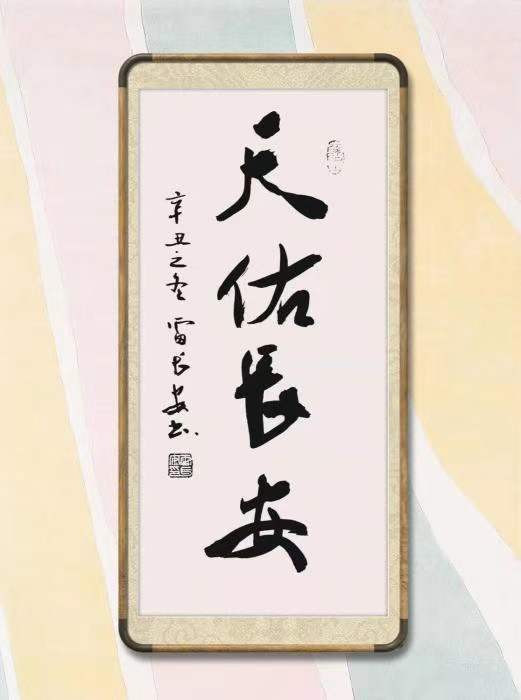 天佑長安
辛丑之冬 雷长安书